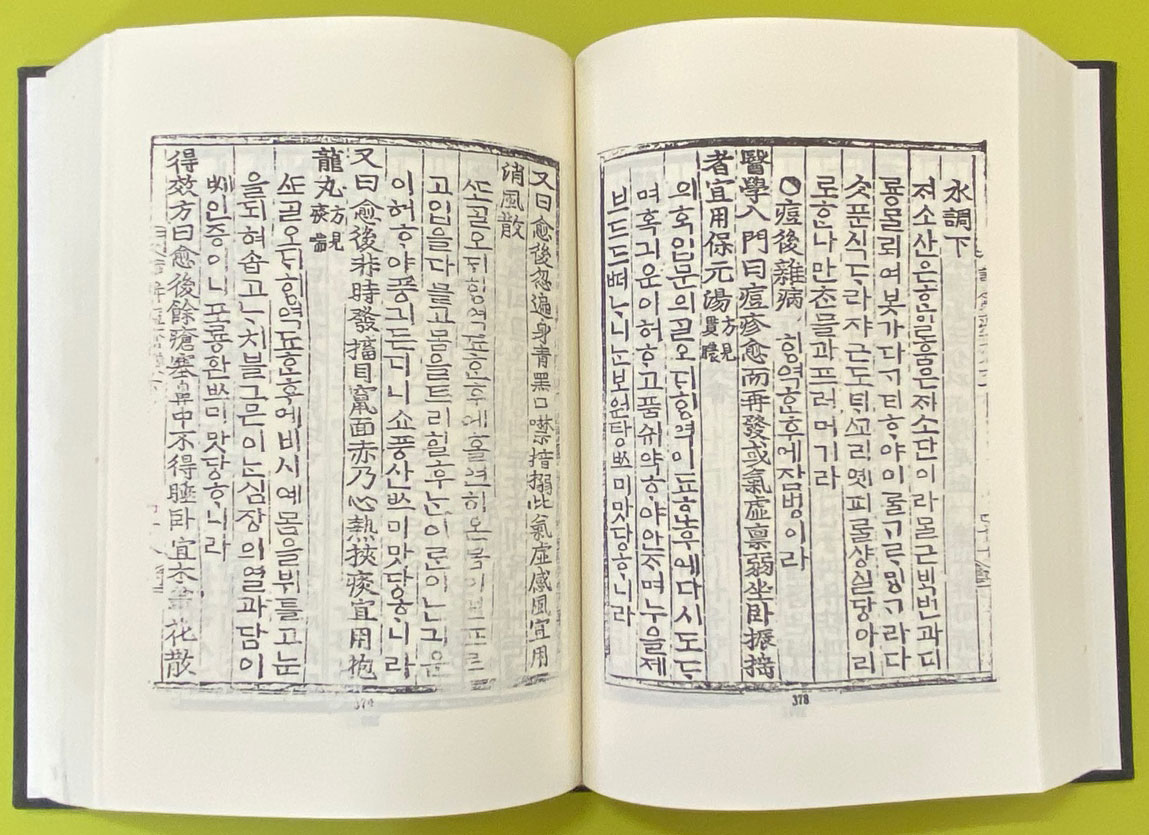 水調下
져소산은ᄒᆞᆫ일홈은자소단이라ᄆᆞᆯ근ᄇᆡᆨ번과디
룡ᄆᆞᆯ뢰여봇가 ᄒᆞ야이ᄅᆞᆯᄀᆞᄅᆞᄆᆡᆼᄀᆞ라다
ᄉᆞᆺ푼식ᄃᆞ라쟈근도ᄐᆡᄭᅩ리옛피ᄅᆞᆯ샹실당아리
로ᄒᆞᆫ나만ᄌᆞᆯ과프러머기라
○痘後雜病 힝역ᄒᆞᆫ후에잡병이라
醫學入門曰痘疹愈而再發或氣虛禀弱坐臥振搖
者宜用保元湯方見貫膿
의ᄒᆞᆨ입문의ᄀᆞᆯ오ᄃᆡ힝역이됴ᄒᆞᆫ후에다시도ᄃᆞ
며혹긔운이허ᄒᆞ고품쉬약ᄒᆞ야안ᄌᆞ며누을제
브드드ᄯᅥᄂᆞ니ᄂᆞᆫ보원탕ᄡᅳ미맛당ᄒᆞ니라
378
又曰愈後忽遍身青黑口噤揞搦此氣虛感風宜用
消風散
ᄯᅩᄀᆞᆯ오ᄃᆡ힝역됴ᄒᆞᆫ후에홀연히온몸이프르
고입을다믈고몸을트리힐후ᄂᆞᆫ이ᄅᆞᆫ이ᄂᆞᆫ긔운
이허ᄒᆞ야풍긔든디니쇼풍산ᄡᅳ미맛당ᄒᆞ니라
又曰愈後非時發搐目竄面赤乃心熱挾痰宜用抱
龍丸方見痰喘
ᄯᅩᄀᆞᆯ오ᄃᆡ힝역됴ᄒᆞᆫ후에비시예몸을뷔틀고눈
을되혀ᄯᅳ고ᄂᆞ치블그ᄆᆞᆫ이ᄂᆞᆫ심장의열과담이
ᄢᅵ인증이니포룡환ᄡᅳ미맛당ᄒᆞ니라
得效方曰愈後餘瘡塞鼻中不得睡臥宜木筆花散
379